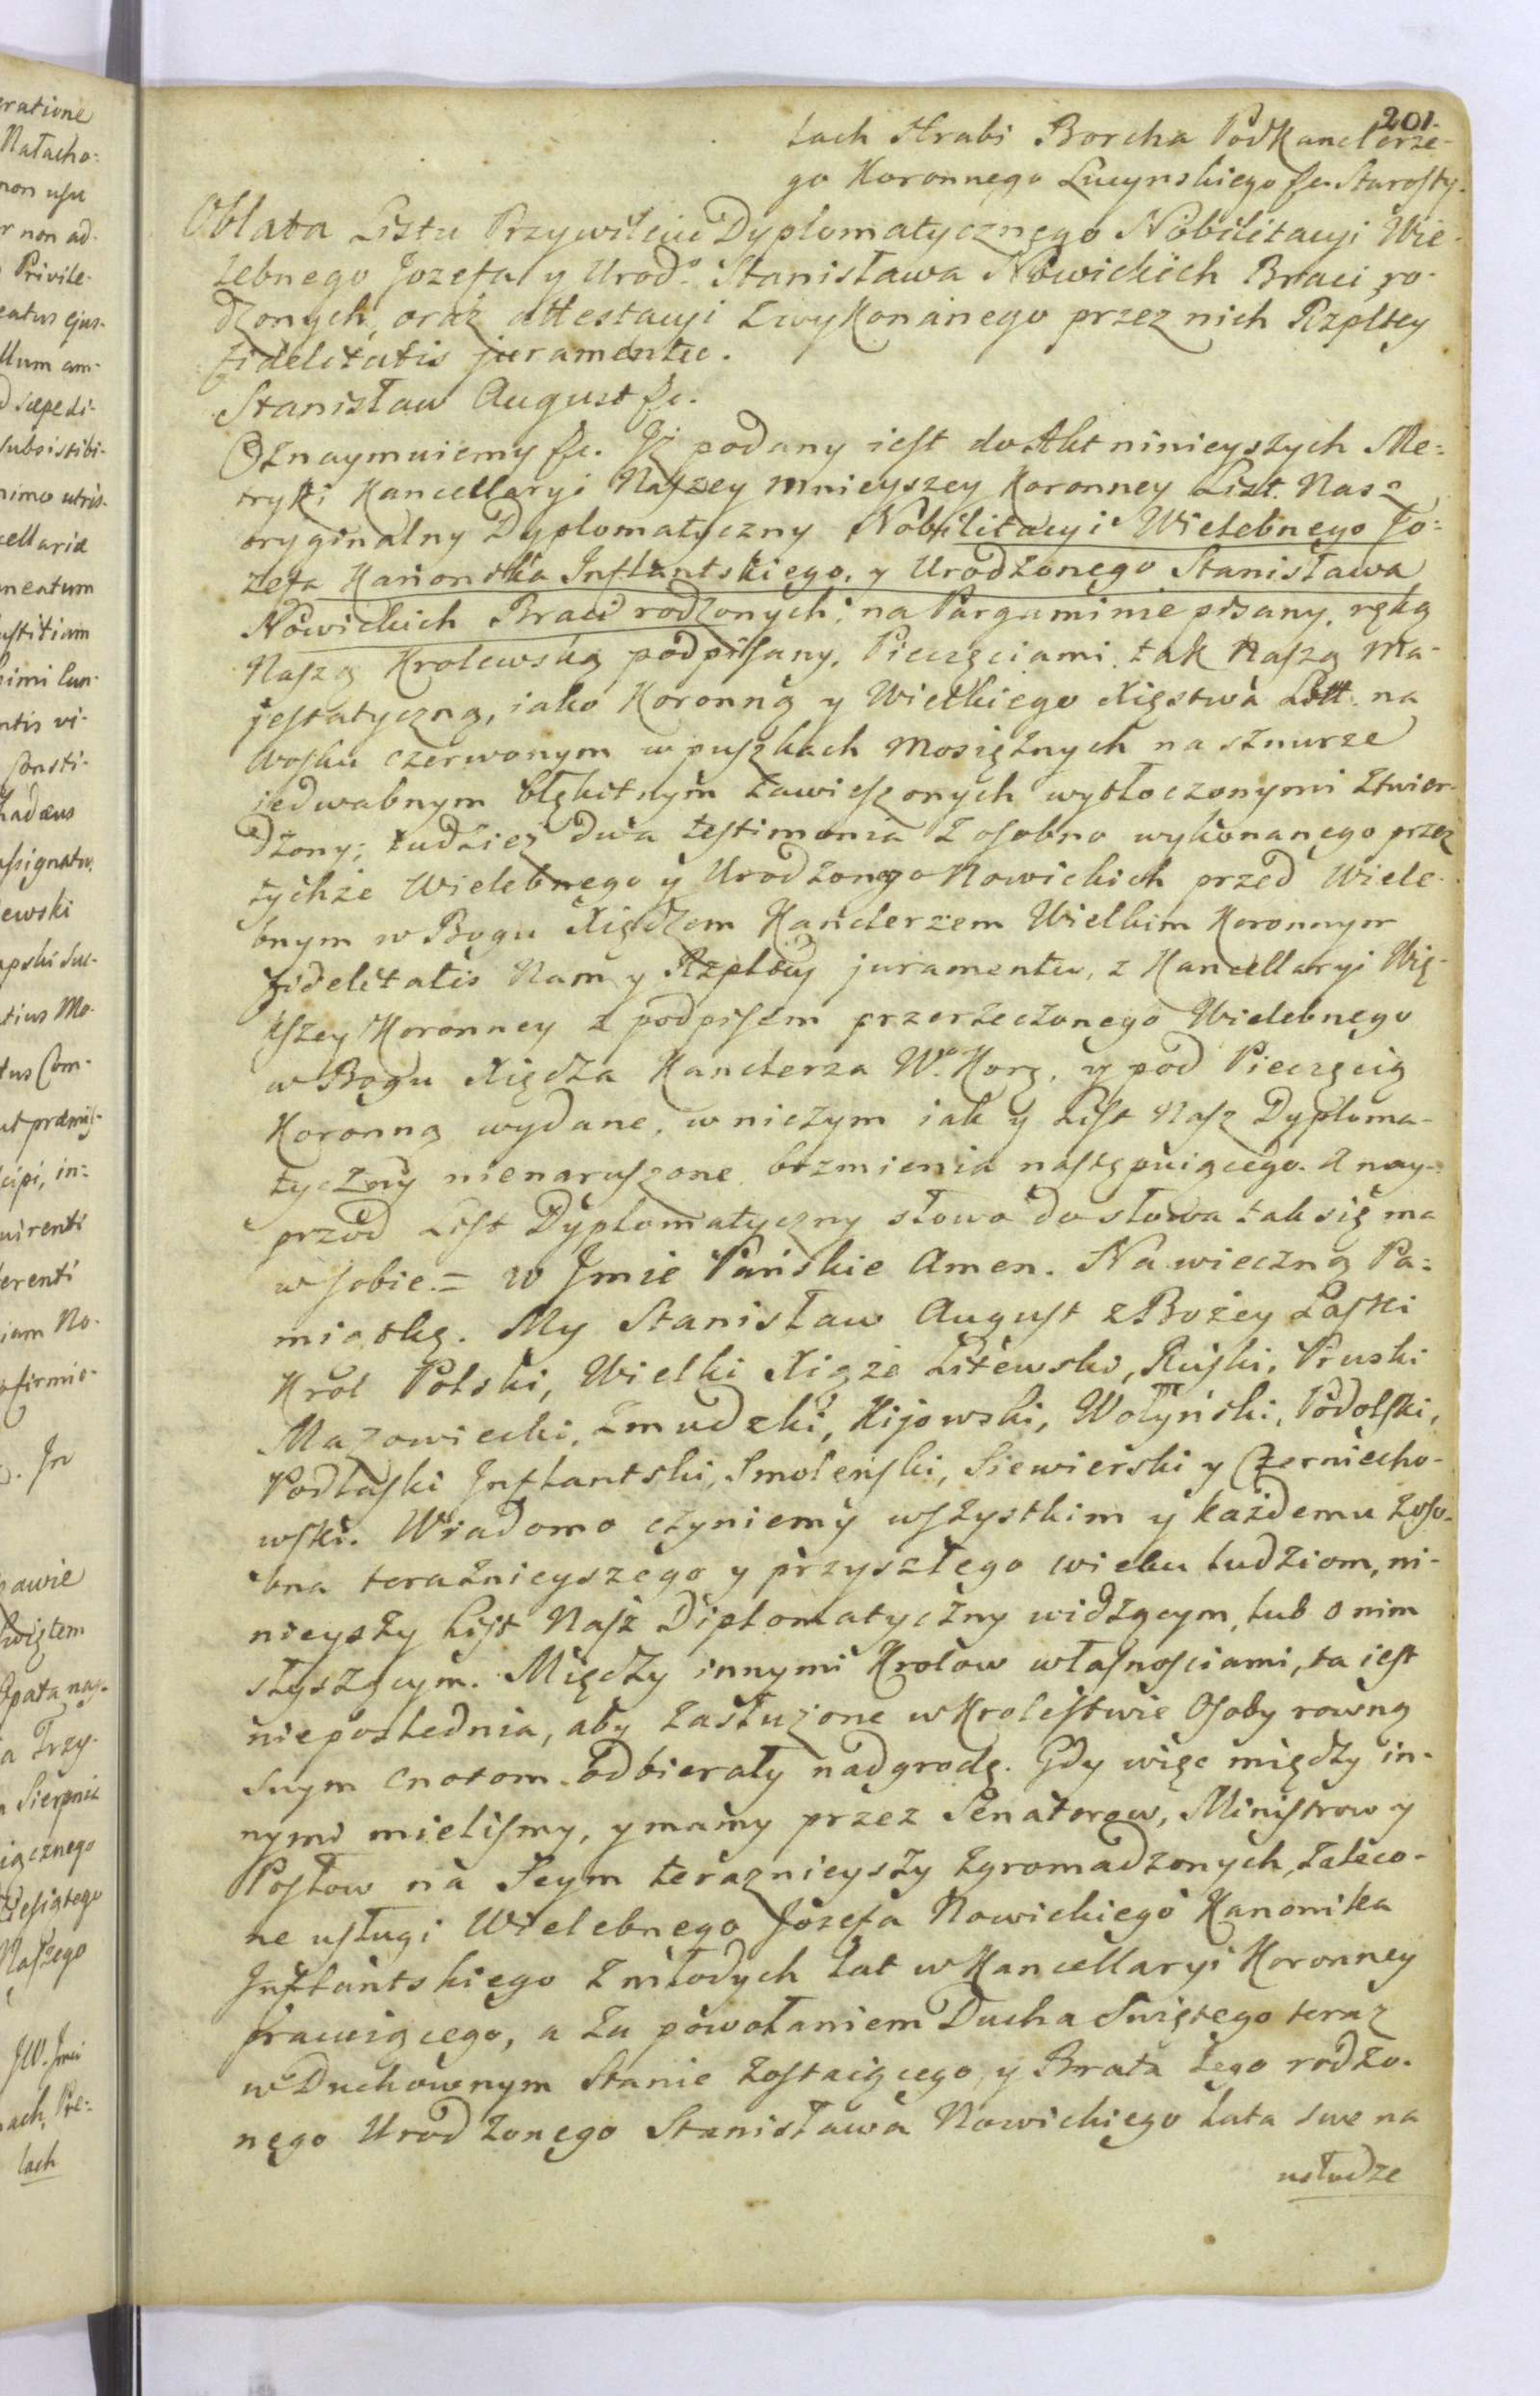 201.
lach Hrabi Borcha Podkanclerze-
go Koronnego Lucynskiego &c. Starosty.
Oblata Listu Przywileiu Dyplomatycznego Nobilitacyi Wie-
lebnego Jozefa y Urodo. Stanisława Nowickich Braci ro-
dzonych, oraz attestacyi z wykonanego przez nich Rzpltey
fidelitatis juramentu.
Stanisław August &c.
Oznaymuiemy &c. Iż podany iest do Akt ninieyszych Me:
tryki Kancellaryi Naszey mnieyszey Koronney List. Nasz
oryginalny Dyplomatyczny Nobilitacyi Wielebnego Jo:
zefa Kanonika Inflantskiego, y Urodzonego Stanisława
Nowickich Braci rodzonych; na Pargaminie pisany, ręką
Naszą Krolewską podpisany, Pieczęciami, tak Naszą Ma-
jestatyczną, iako Koronną y Wielkiego Xięstwa Litt. na
wosku czerwonym w puszkach mosiężnych na sznurze
jedwabnym błękitnym zawieszonych wytłoczonymi ztwier-
dzony; tudzież dwa testimonia z osobna wykonanego przez
tychże Wielebnego y Urodzonego Nowickich przed Wiele-
bnym w Bogu Xiędzem Kanclerzem Wielkim Koronnym
fidelitatis Nam y Rzpltey juramentu, z Kancellaryi Wię-
kszey Koronney z podpisem przerzeczonego Wielebnego
w Bogu Xiędza Kanclerza Wo. Korg. y pod Pieczęcią
Koronną wydane, w niczym iak y List Nasz Dyploma-
tyczny nienaruszone, brzmienia następuiącego. A nay-
przod List Dyplomatyczny słowo do słowa tak się ma
w sobie. = w Jmie Pańskie Amen. Na wieczną Pa:
miątkę. My Stanisław August z Bożey Łaski
Krol Polski, Wielki Xiąże Litewski, Ruski, Pruski
Mazowiecki, Zmudzki, Kijowski, Wołyński, Podolski,
Podlaski Inflantski, Smoleński, Siewierski y Czerniecho-
wski. Wiadomo czyniemy wszystkim y każdemu z oso-
bna teraźnieyszego y przyszłego wieku ludziom, ni-
nieyszy list Nasz Diplomatyczny widzącym, lub o nim
słyszącym. Między innymi Krolow własnościami, ta iest
niepoślednia, aby zasłużone w Krolestwie Osoby rowną
swym cnotom odbierały nadgrodę. Gdy więc między in-
nymi mieliśmy, y mamy przez Senatorow, Ministrow y
Posłow na Seym teraznieyszy zgromadzonych, zaleco-
ne usługi Wielebnego Jozefa Nowickiego Kanonika
Inflantskiego z młodych lat w Kancellaryi Koronney
pracuiącego, a za powołaniem Ducha Swiętego teraz
w Duchownym Stanie zostaiącego, y Brata Jego rodzo-
nego Urodzonego Stanisława Nowickiego lata swe na
usłudze
eratione
Natacho:
non usu
r non ad-
Privile-
eatus ejus-
llum am-
subsistibi-
nimo utris-
cellaria
neatum
ustitiam
ntis vi-
Consti-
ewski
tius Mo-
tus Com-
cipi, in:
uirenti
erenti
iam No-
. In
awie
więtem
Opata nay-
a Trzy-
Sierpnia
iącznego
ziesiątego
Naszego
JW. Jmci
ach, Pie:
lach